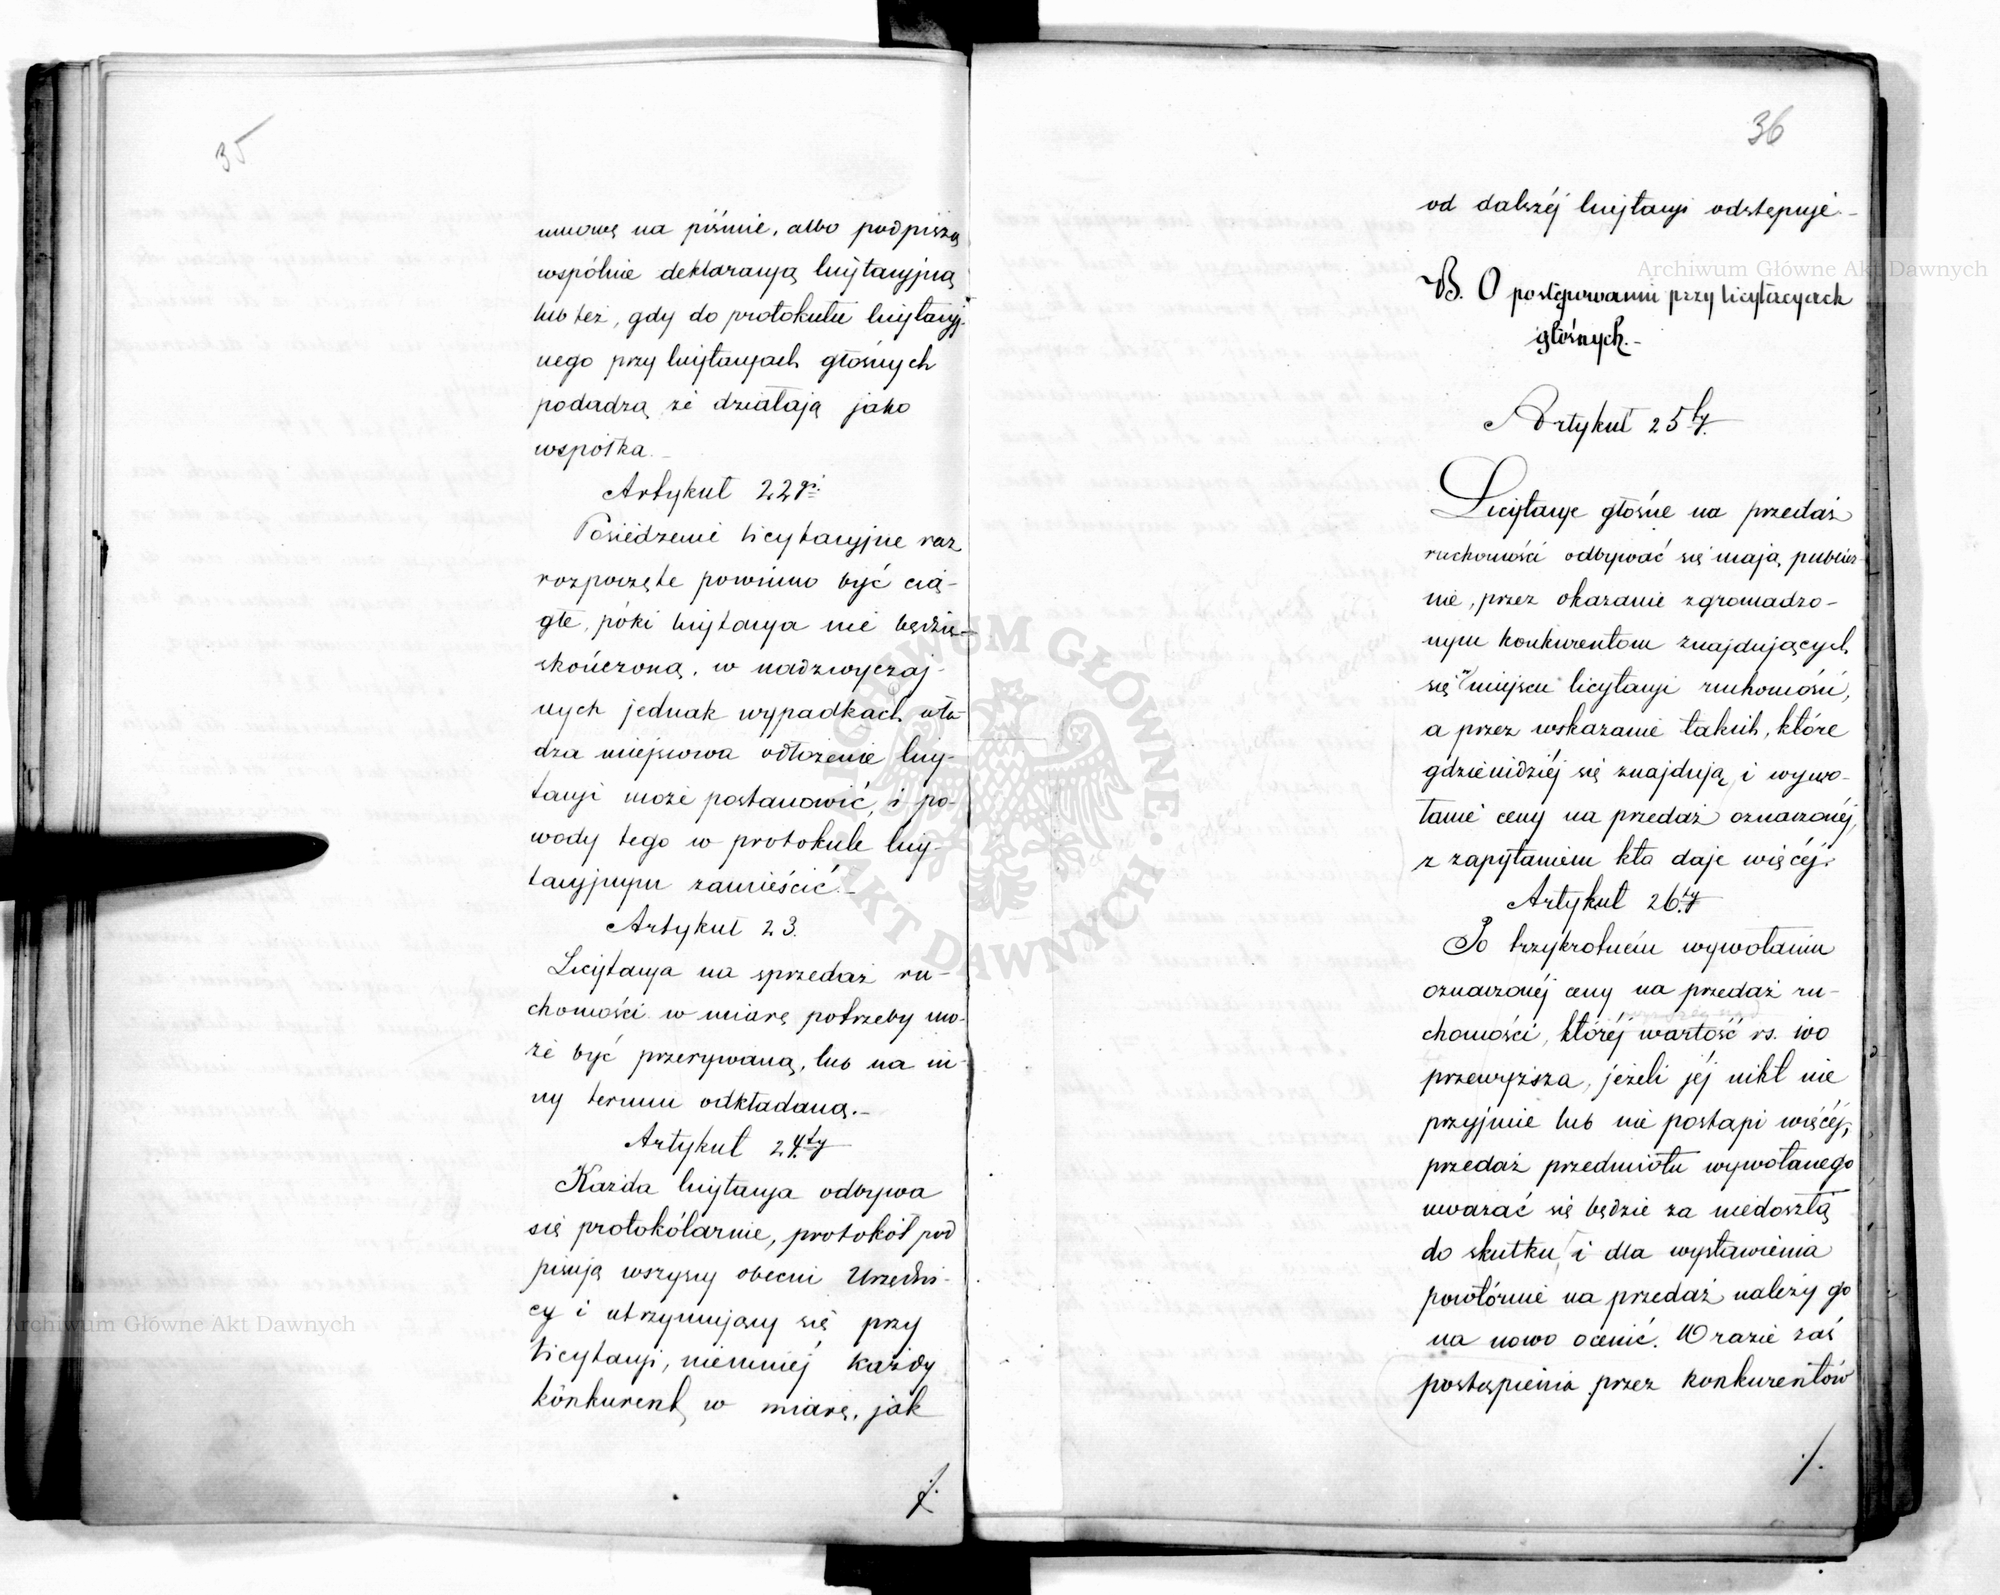 35
umowę na piśmie, albo podpiszą
wspólnie deklaracyą licytacyjną
lub też, gdy do protokułu licytacyj-
nego przy licytacyach głośnych
podadzą że działają jako
wspólka.
Artykuł 22gi.
Posiédzenié licytacyjne raz
rozpoczęte powinno być cią-
głe, póki licytacya nié będzie
skończoną, w nadzwyczaj-
nych jednak wypadkach wła-
dza miejscowa odłożenie licy-
tacyi możé postanowić, i po-
wody tego w protokule licy-
tacyjnym zamieścić.
Artykuł 23.
Licytacya na sprzedaż ru-
chomości w miarę potrzeby mo-
żé być przerywaną, lub na in-
ny termin odkładaną.
Artykuł 24ty
Każda licytacya odbywa
się protokólarnie, protokół pod
pisują wszyscy obecni Urzędni-
cy i utrzymujący się przy
licytacyi, niemniéj każdy
konkurent, w miarę, jak
./.
36
od dalszéj licytacyi odstępuje.
B. O postępowaniu przy licytacyach
głośnych.
Artykuł 25ty.
Licytacye głośne na przedaż
ruchomości odbywać się mają publicz-
nie, przez okazanie zgromadzo-
nym konkurentom znajdujących
się w miejscu licytacyi ruchomości,
a przez wskazanie takich, które
gdzieindziéj się znajdują, i wywo-
łanié ceny na przedaż oznaczonéj,
z zapytaniem kto daje więcéj.
Artykuł 26ty
Po trzykrotném wywołaniu
oznaczonéj ceny na przedaż ru-
chomości, któréj wartość rs. 100
przewyższa, jeżeli jéj nikt nie
przyjmie lub nie postąpi więcéj,
przedaż przedmiotu wywołanego
uważać się będzie za niedoszłą
do skutku, i dla wystawienia
powtórnié na przedaż należy go
na nowo ocenić. W razie zaś
postąpienia przez konkurentów
./.
Archiwum Główne Akt Dawnych
Archiwum Główne Akt Dawnych
ARCHIWUM GŁÓWNE · AKT DAWNYCH ·